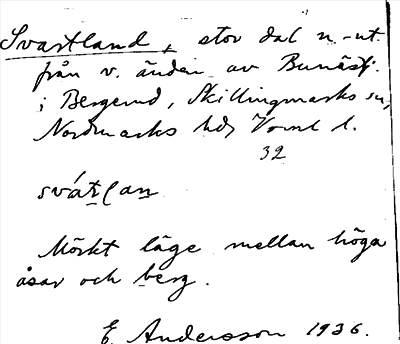 Svartland, stor dal n-ut.
från v. änden av Bunäsfj.
i Bergerud, Skillingmarks sn,
Nordmarks hd, Värml l.
32
svát̠ḷan̠
Mörkt läge mellan höga
åsar och berg.
E. Andersson 1936.